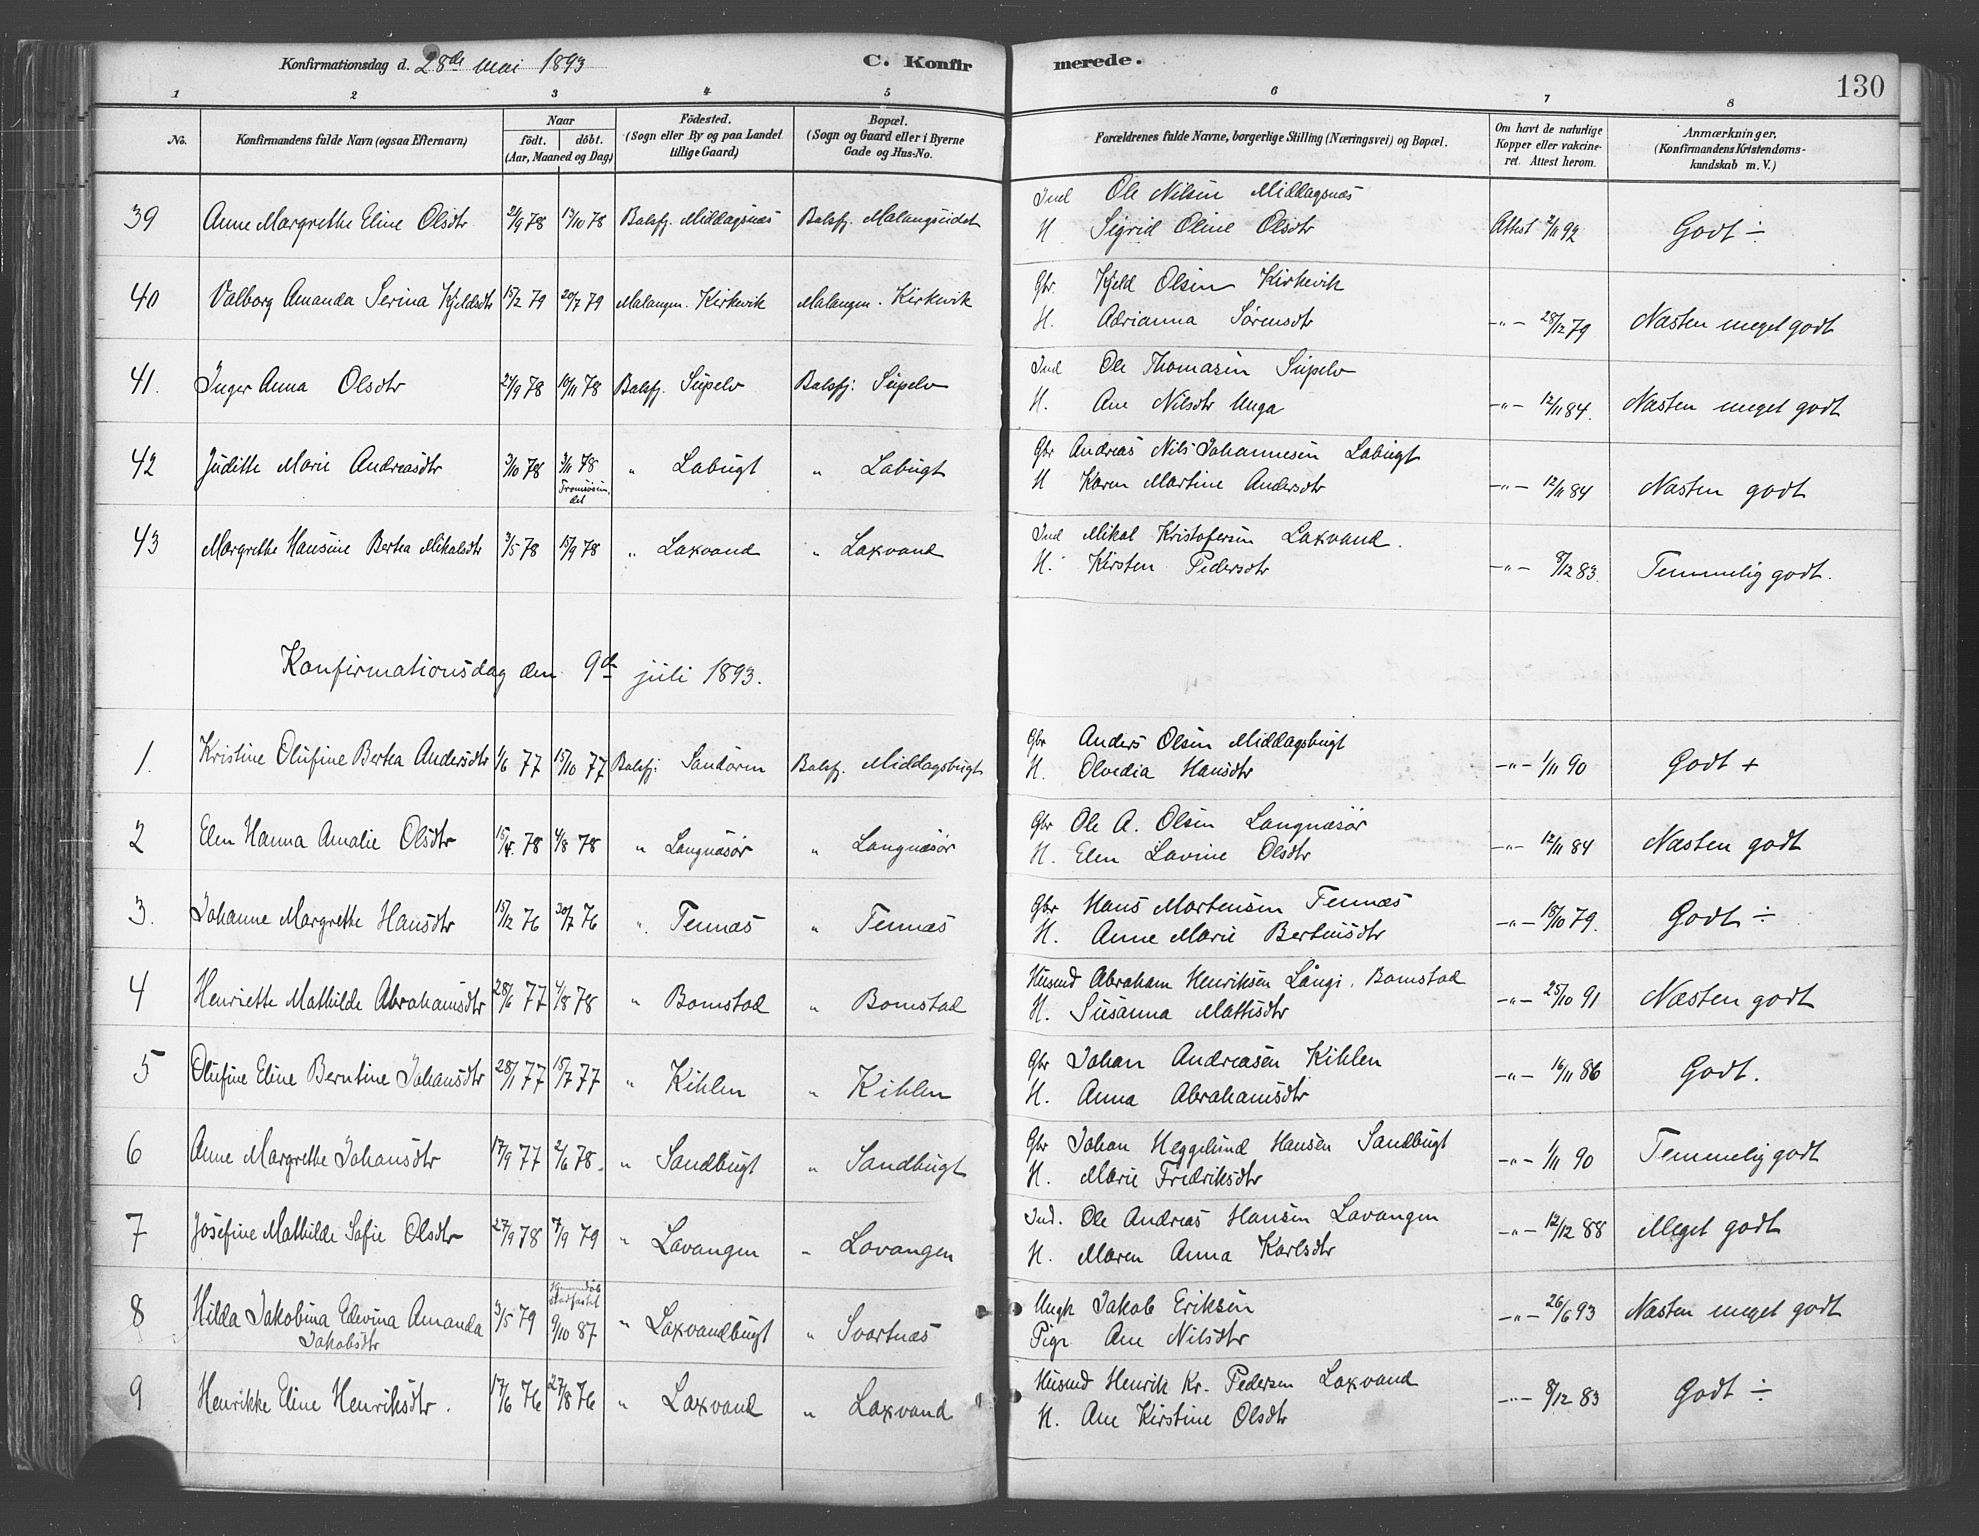 Konfirmationsdag d. 28de mai 1893 C. Konfirmerede. 130
1 2 3 4 5 6 7 8
No. Konfirmandens fulde Navn (ogsaa Efternavn) Naar født. døbt. (Aar, Maaned og Dag) Födested. (Sogn eller By og paa Landet tillige Gaard) Bopæl. (Sogn og Gaard eller i Byerne Gade og Hus-No. Forældrenes fulde Navne, borgerlige Stilling (Næringsvei) og Bopæl. Om havt de naturlige Kopper eller vakcineret. Attest herom. Anmærkninger, (Konfirmandens Kristendomskundskab m. V.)
39 Anne Margrethe Eline Olsdtr 2/9 78 13/10 78 Balsfj. Middagsnæs Balsfj. Malangseidet Ind Ole Nilsen Middagsnæs Attest 2/11 92 Godt ÷
H Sigrid Oline Olsdtr
40 Valborg Amanda Serina Kjeldsdtr 15/2 79 20/7 79 Malangen. Kirkevik Malangen. Kirkevik Gbr. Kjeld Olsen Kirkevik -"- 28/12 79 Næsten meget godt
H. Adrianna Sørensdtr
41. Inger Anna Olsdtr 27/9 78 10/11 78 Balsfj. Supelv Balsfj: Supelv Ind Ole Thomasen Supelv -"- 12/11 84. Næsten meget godt
H. Ane Nilsdtr Unga
42 Judithe Marie Andreasdtr 3/10 78 3/11 78 Tromsøsundet " Labugt " Labugt Gbr Andreas Nils Johannesen Labugt -"- 12/11 84 Næsten godt
H Karen Martine Andersdtr
43 Margrethe Hansine Bertea Mikalsdtr 3/5 78 15/9 78 " Laxvand " Laxvand Ind Mikal Kristofersen Laxvand. -"- 8/12 83. Temmelig godt.
H. Kirsten Pedersdtr
Konfirmationsdag den 9de juli 1893.
1. Kristine Olufine Bertea Andersdtr 1/6 77 15/10 77 Balsfj: Sandøren Balsfj. Middagsbugt Gbr Anders Olsen Middagsbugt -"- 1/11 90 Godt +
H. Olvedia Hansdtr
2 Elen Hanna Amalie Olsdtr 15/4. 78 4/8 78 " Langnæsør " Langnæsør Gbr Ole A. Olsen Langnæsør -"- 12/11 84 Næsten godt
H. Elen Lavine Olsdtr
3. Johanne Margrethe Hansdtr 15/12 76 30/7 76 " Tennæs " Tennæs Gbr Hans Mortensen Tennæs -"- 18/10 79. Godt ÷
H. Anne Marie Berteusdtr
4 Henriette Mathilde Abrahamsdtr 28/6 77 4/8 78 " Bomstad " Bomstad Husmd Abraham Henriksen Långi. Bomstad -"- 25/10 91 Næsten godt
H. Susanna Mathisdtr
5 Olufine Eline Berntine Johansdtr 28/1 77 15/7 77 " Kihlen " Kihlen Gbr Johan Andreasen Kihlen -"- 16/11 86 Godt.
H. Anna Abrahamsdtr
6 Anne Margrethe Johansdtr 17/9 77 2/6 78. " Sandbugt " Sandbugt Gbr Johan Heggelund Hansen Sandbugt -"- 1/11 90 Temmelig godt
H. Marie Fredriksdtr
7 Josefine Mathilde Sofie Olsdtr 27/9 78 7/9 79 " Lavangen " Lavangen Ind. Ole Andreas Hansen Lavangen -"- 12/12 88 Meget godt
H. Maren Anna Karlsdtr
8 Hilda Jakobina Edevina Amanda Jakobsdtr 3/5 79 Hjemmedøb stadfæstet 9/10 87 " Laxvandbugt " Svartnæs Ungk Jakob Eriksen -"- 26/6 93 Næsten meget godt
Pige Ane Nilsdtr
9 Henrikke Eline Henriksdtr. 17/6 76 27/8 76 " Laxvand " Laxvand Husmd Henrik Kr. Pedersen Laxvand -"- 8/12 83 Godt ÷
H. Ane Kirstine Olsdtr